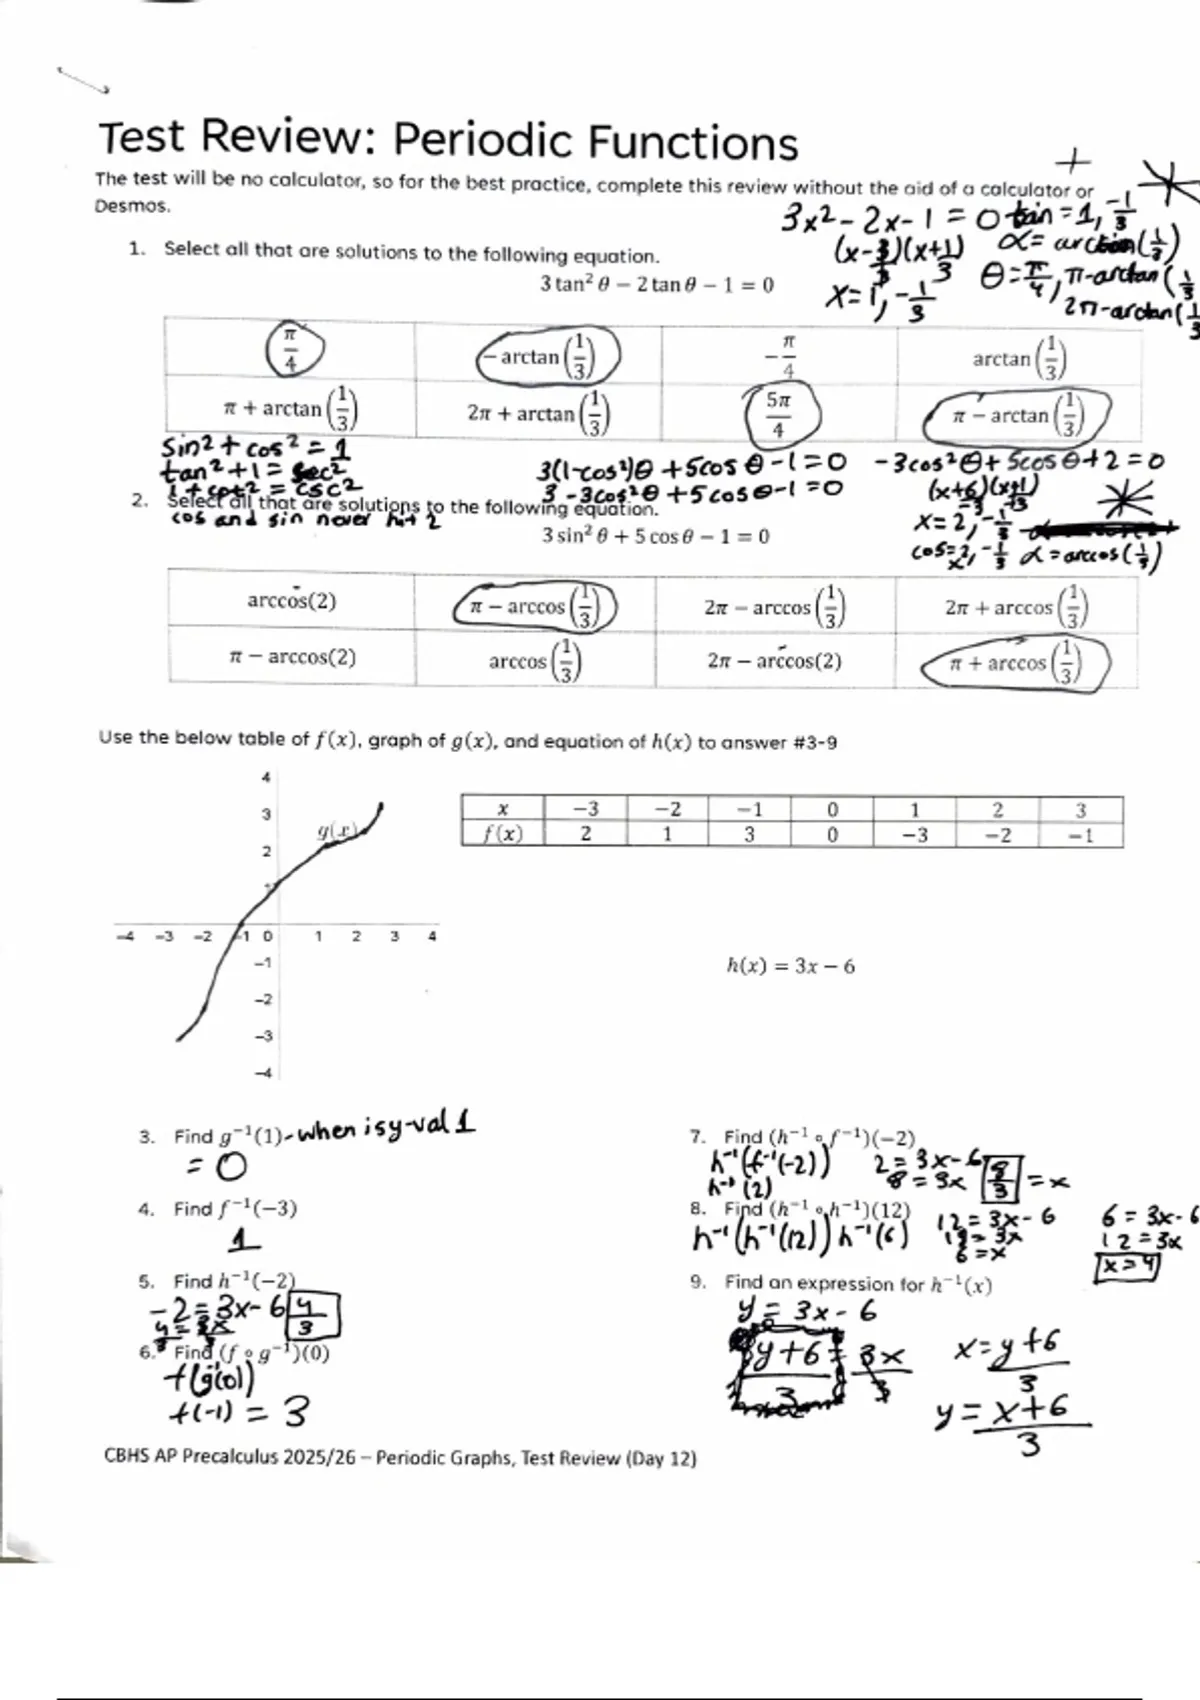 Test Review: Periodic Functions
The test will be no calculator, so for the best practice, complete this review without the aid of a calculator or
Desmos.
3x2 - 2x - 1 = 0 tan = 1, -1/3
(x-3/3)(x+1/3) α = arctan(1/3)
x = 1, -1/3 θ = π/4, π-arctan(1/3
2π-arctan(1/3
1. Select all that are solutions to the following equation.
3 tan² θ − 2 tan θ − 1 = 0
π/4 − arctan (1/3) −π/4 arctan (1/3)
π + arctan (1/3) 2π + arctan (1/3) 5π/4 π − arctan (1/3)
sin2 + cos2 = 1
tan2 + 1 = sec2
1 + cot2 = csc2
cos and sin never hit 2
3(1-cos²)θ + 5cos θ - 1 = 0 -3cos²θ + 5cosθ + 2 = 0
3 - 3cos²θ + 5cosθ - 1 = 0 (x+6)(x+1)
-3 +3
x = 2, -1/3
cos = 2, -1/3 α = arccos(1/3)
x
2. Select all that are solutions to the following equation.
3 sin² θ + 5 cos θ − 1 = 0
arccos(2) π − arccos (1/3) 2π − arccos (1/3) 2π + arccos (1/3)
π − arccos(2) arccos (1/3) 2π − arccos(2) π + arccos (1/3)
Use the below table of f(x), graph of g(x), and equation of h(x) to answer #3-9
4
3
g(x)
2
−4 −3 −2 −1 0 1 2 3 4
−1
−2
−3
−4
x −3 −2 −1 0 1 2 3
f(x) 2 1 3 0 −3 −2 −1
h(x) = 3x − 6
3. Find g⁻¹(1) - when is y-val 1
= 0
4. Find f⁻¹(−3)
1
5. Find h⁻¹(−2)
-2 = 3x - 6 4/3
4/3 = 3x/3
6. Find (f ∘ g⁻¹)(0)
f(g⁻¹(0))
f(-1) = 3
7. Find (h⁻¹ ∘ f⁻¹)(−2)
h⁻¹(f⁻¹(-2)) 2 = 3x - 6
h⁻¹(2) 8 = 3x 8/3 = x
8. Find (h⁻¹ ∘ h⁻¹)(12)
h⁻¹(h⁻¹(12)) h⁻¹(6) 12 = 3x - 6 6 = 3x - 6
18 = 3x 12 = 3x
6 = x x = 4
9. Find an expression for h⁻¹(x)
y = 3x - 6
y+6/3 = 3x/3 x = y+6/3
y = x+6/3
CBHS AP Precalculus 2025/26 – Periodic Graphs, Test Review (Day 12)